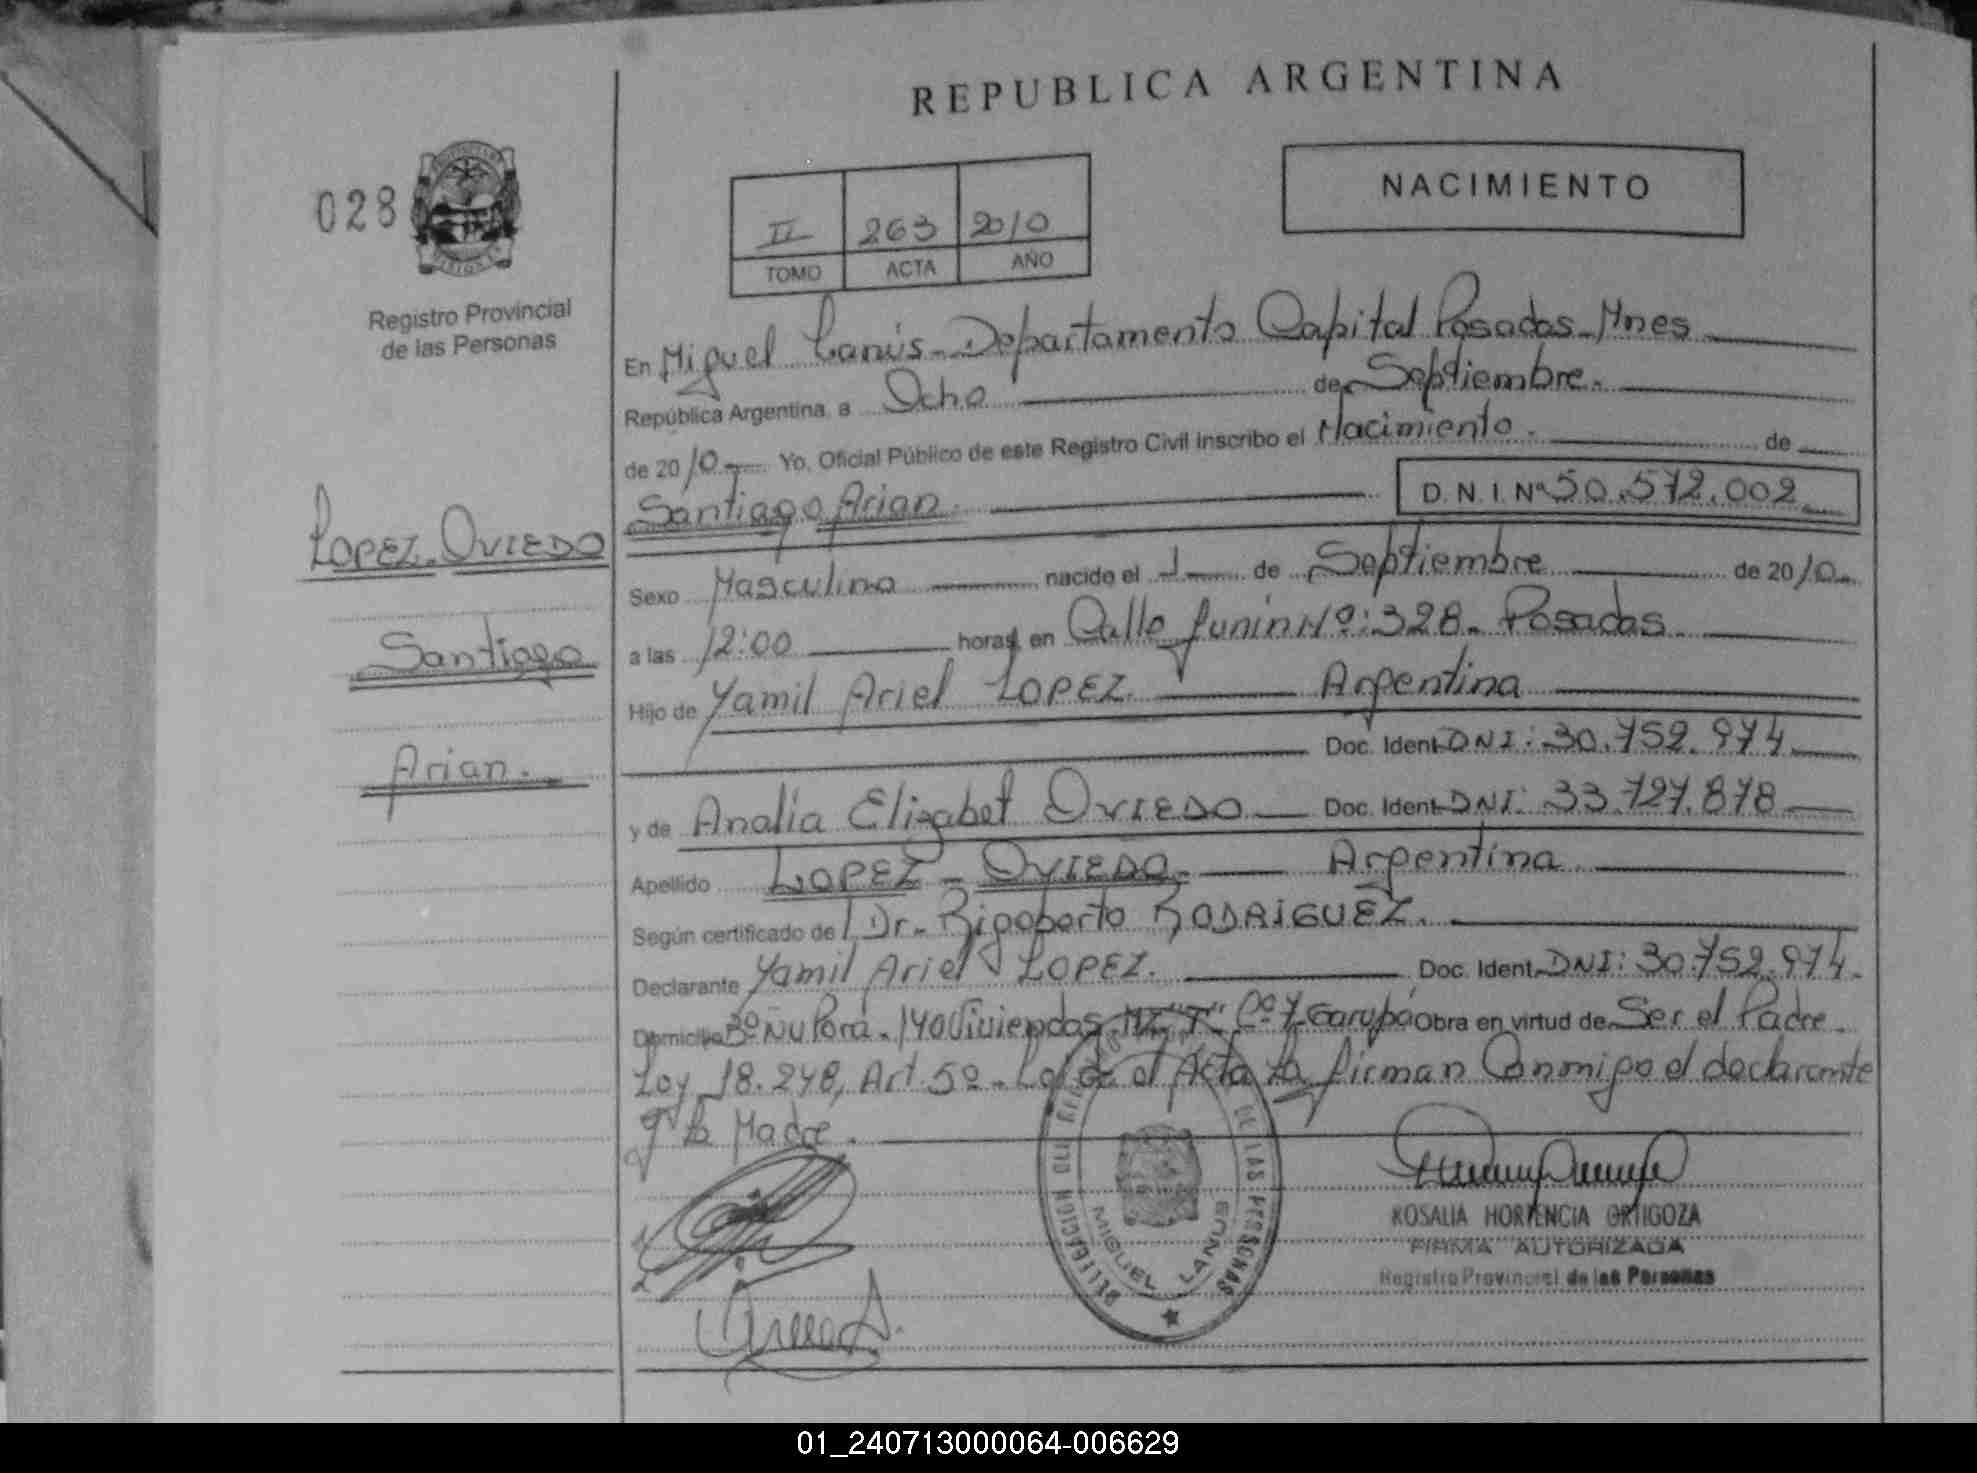 REPUBLICA ARGENTINA
NACIMIENTO
028
II 263 2010
TOMO ACTA AÑO
Registro Provincial
de las Personas
En Miguel Lanús - Departamento Capital Posadas - Mnes
República Argentina, a Ocho de Septiembre.
de 2010 Yo, Oficial Público de este Registro Civil inscribo el Nacimiento. de
Santiago Arian. D.N.I. Nº 50.572.002
LOPEZ - OVIEDO
Santiago
Arian.
Sexo Masculino nacido el 1 de Septiembre de 2010
a las 12:00 horas en Calle Junín Nº: 328 - Posadas.
Hijo de Yamil Ariel LOPEZ. Argentina
Doc. Ident. DNI: 30.752.974
y de Analía Elizabet OVIEDO Doc. Ident. DNI: 33.727.878
Apellido LOPEZ - OVIEDO. Argentina
Según certificado de Dr. Rigoberto RODRIGUEZ.
Declarante Yamil Ariel LOPEZ. Doc. Ident. DNI: 30.752.974.
Domicilio Bº Ñu Porá - 140 Viviendas - Cº 7 - Garupá Obra en virtud de Ser el Padre.
Ley 18.248, Art. 5º - el Acta la firman Conmigo el declarante
y la Madre.
DELEGACION DE LAS PERSONAS
MIGUEL LANUS
ROSALIA HORTENCIA ORTIGOZA
FIRMA AUTORIZADA
Registro Provincial de las Personas
01_240713000064-006629